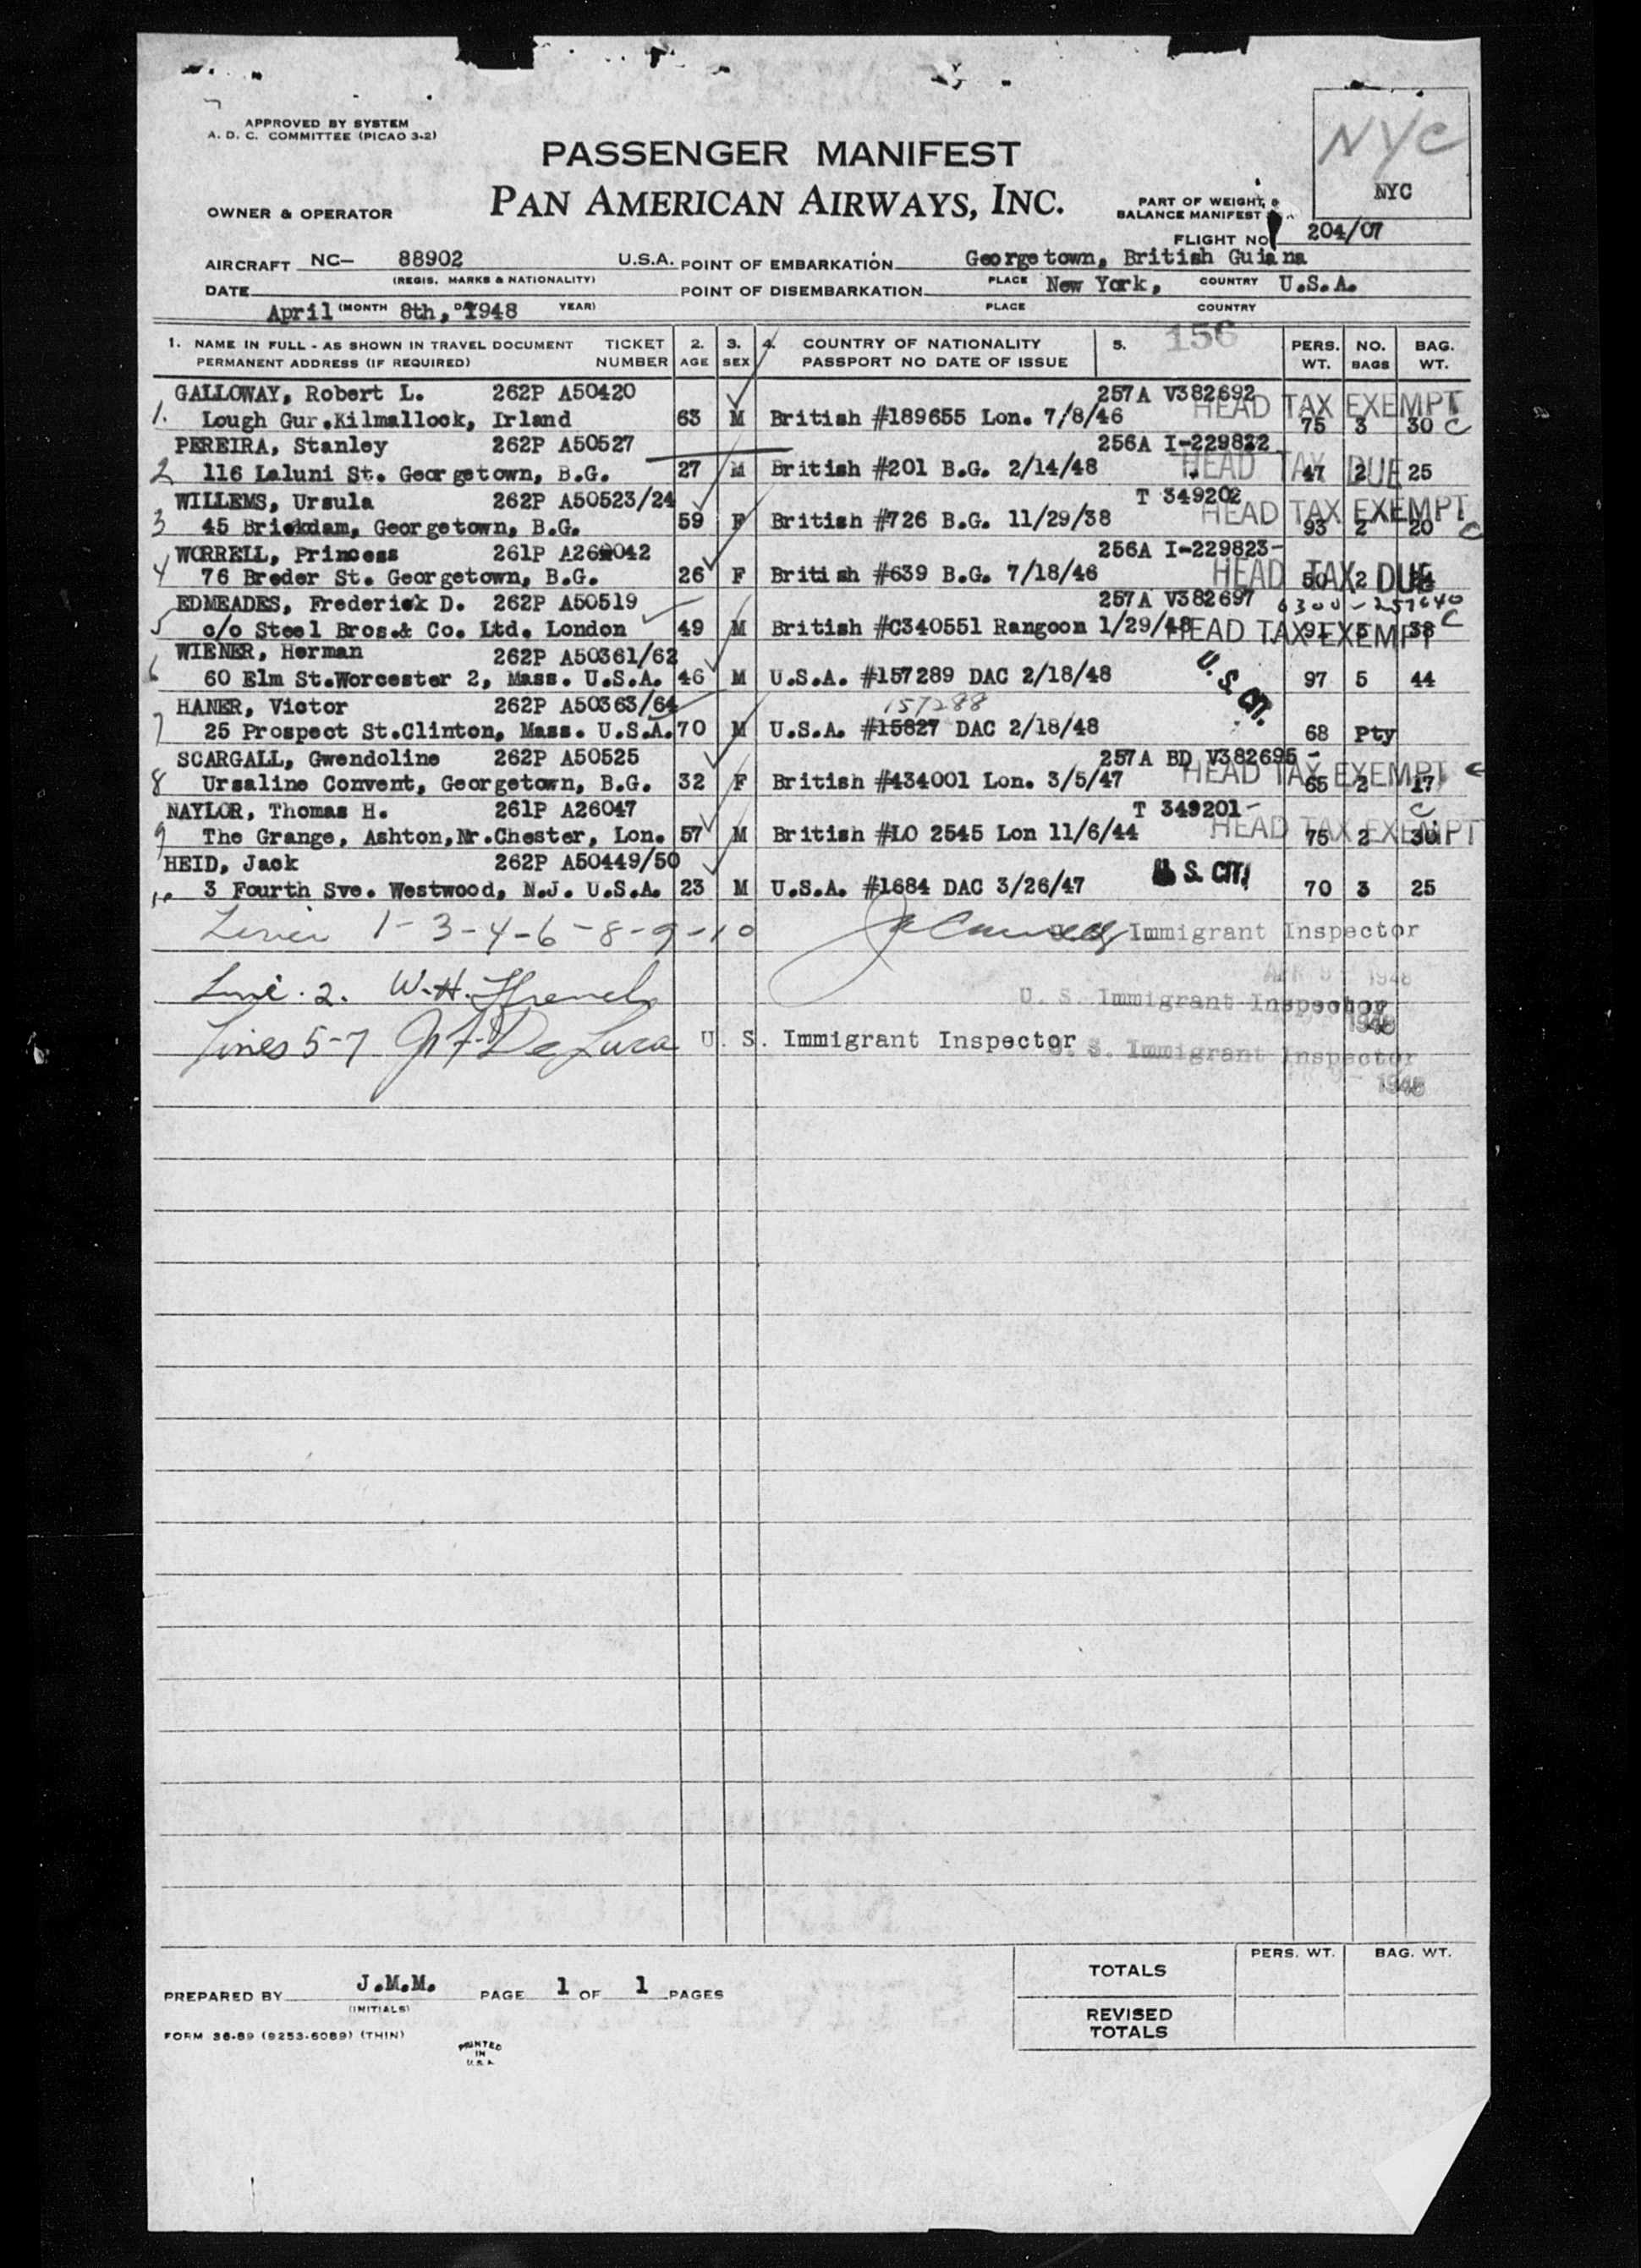 APPROVED BY SYSTEM
A. D. C. COMMITTEE (PICAO 3-2)
NYC
PASSENGER MANIFEST
PAN AMERICAN AIRWAYS, INC.
NYC
OWNER & OPERATOR
PART OF WEIGHT &
BALANCE MANIFEST
FLIGHT NO. 204/07
AIRCRAFT NC- 88902 U.S.A. POINT OF EMBARKATION Georgetown, British Guiana
(REGIS. MARKS & NATIONALITY) PLACE COUNTRY
DATE POINT OF DISEMBARKATION New York, U.S.A.
April (MONTH 8th, DAY 1948 YEAR) PLACE COUNTRY
156
1. NAME IN FULL - AS SHOWN IN TRAVEL DOCUMENT TICKET 2. 3. 4. COUNTRY OF NATIONALITY 5. PERS. NO. BAG.
PERMANENT ADDRESS (IF REQUIRED) NUMBER AGE SEX PASSPORT NO DATE OF ISSUE WT. BAGS WT.
GALLOWAY, Robert L. 262P A50420 257A V382692 HEAD TAX EXEMPT
1. Lough Gur.Kilmallock, Irland 63 M British #189655 Lon. 7/8/46 75 3 30 C
PEREIRA, Stanley 262P A50527 256A I-229822
2 116 Laluni St. Georgetown, B.G. 27 M British #201 B.G. 2/14/48 HEAD TAX DUE 47 2 25
WILLEMS, Ursula 262P A50523/24 T 349202 HEAD TAX EXEMPT
3 45 Brickdam, Georgetown, B.G. 59 F British #726 B.G. 11/29/38 93 2 20 C
WORRELL, Princess 261P A26 042 256A I-229823-
4 76 Breder St. Georgetown, B.G. 26 F British #639 B.G. 7/18/46 HEAD TAX DUE 50 2
EDMEADES, Frederick D. 262P A50519 257A V382697 0300-257640
5 c/o Steel Bros.& Co. Ltd. London 49 M British #C340551 Rangoon 1/29/48 HEAD TAX EXEMPT 91 5 38 C
WIENER, Herman 262P A50361/62 U. S. CIT.
6 60 Elm St.Worcester 2, Mass. U.S.A. 46 M U.S.A. #157289 DAC 2/18/48 97 5 44
HANER, Victor 262P A50363/64 157288
7 25 Prospect St.Clinton, Mass. U.S.A. 70 M U.S.A. #15827 DAC 2/18/48 68 Pty
SCARGALL, Gwendoline 262P A50525 257A BD V382695 -
8 Ursaline Convent, Georgetown, B.G. 32 F British #434001 Lon. 3/5/47 HEAD TAX EXEMPT 65 2 17 C
NAYLOR, Thomas H. 261P A26047 T 349201- C
9 The Grange, Ashton,Nr.Chester, Lon. 57 M British #LO 2545 Lon 11/6/44 HEAD TAX EXEMPT 75 2 30
HEID, Jack 262P A50449/50
10 3 Fourth Sve. Westwood, N.J. U.S.A. 23 M U.S.A. #1684 DAC 3/26/47 U. S. CIT. 70 3 25
1-3-4-6-8-9-10 Immigrant Inspector
APR 1948
Line 2. W.H. U. S. Immigrant Inspector
1948
Lines 5-7 De Luca U. S. Immigrant Inspector U. S. Immigrant Inspector
1948
PREPARED BY J.M.M. PAGE 1 OF 1 PAGES
(INITIALS)
FORM 36-89 (9253-6089) (THIN)
PRINTED
IN
U.S.A.
PERS. WT. BAG. WT.
TOTALS
REVISED
TOTALS